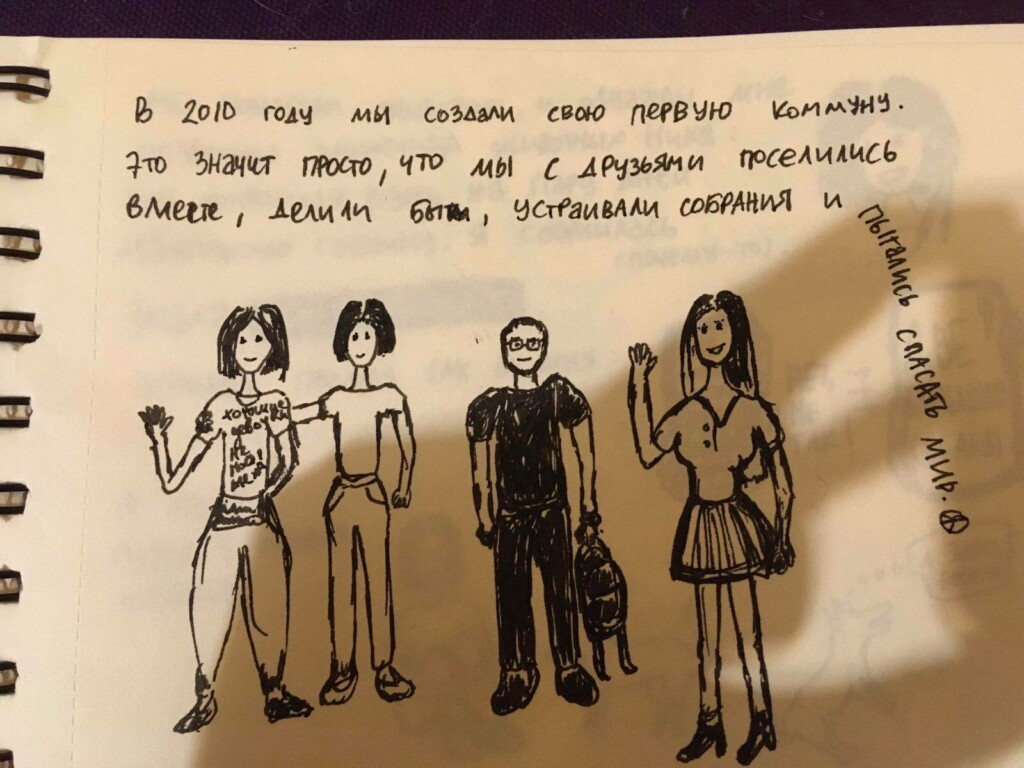 В 2010 году мы создали свою первую коммуну.
Это значит просто, что мы с друзьями поселились
вместе, делили быт, устраивали собрания и
пытались спасать мир.
хорошие
девочки